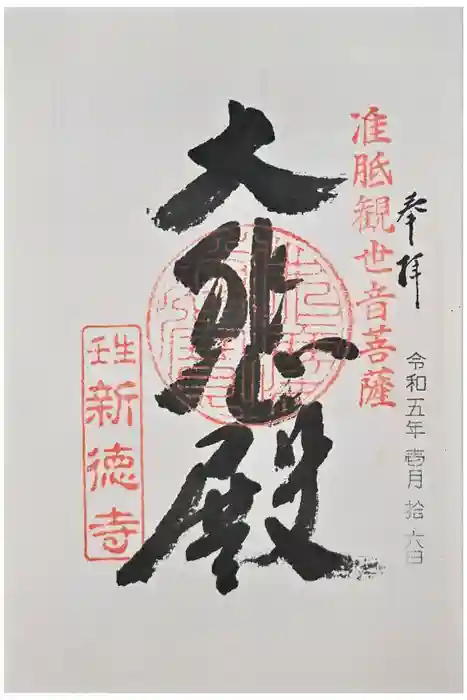 奉拝
令和五年 壱月 拾六日
准胝観世音菩薩
大悲殿
壬生
新徳寺